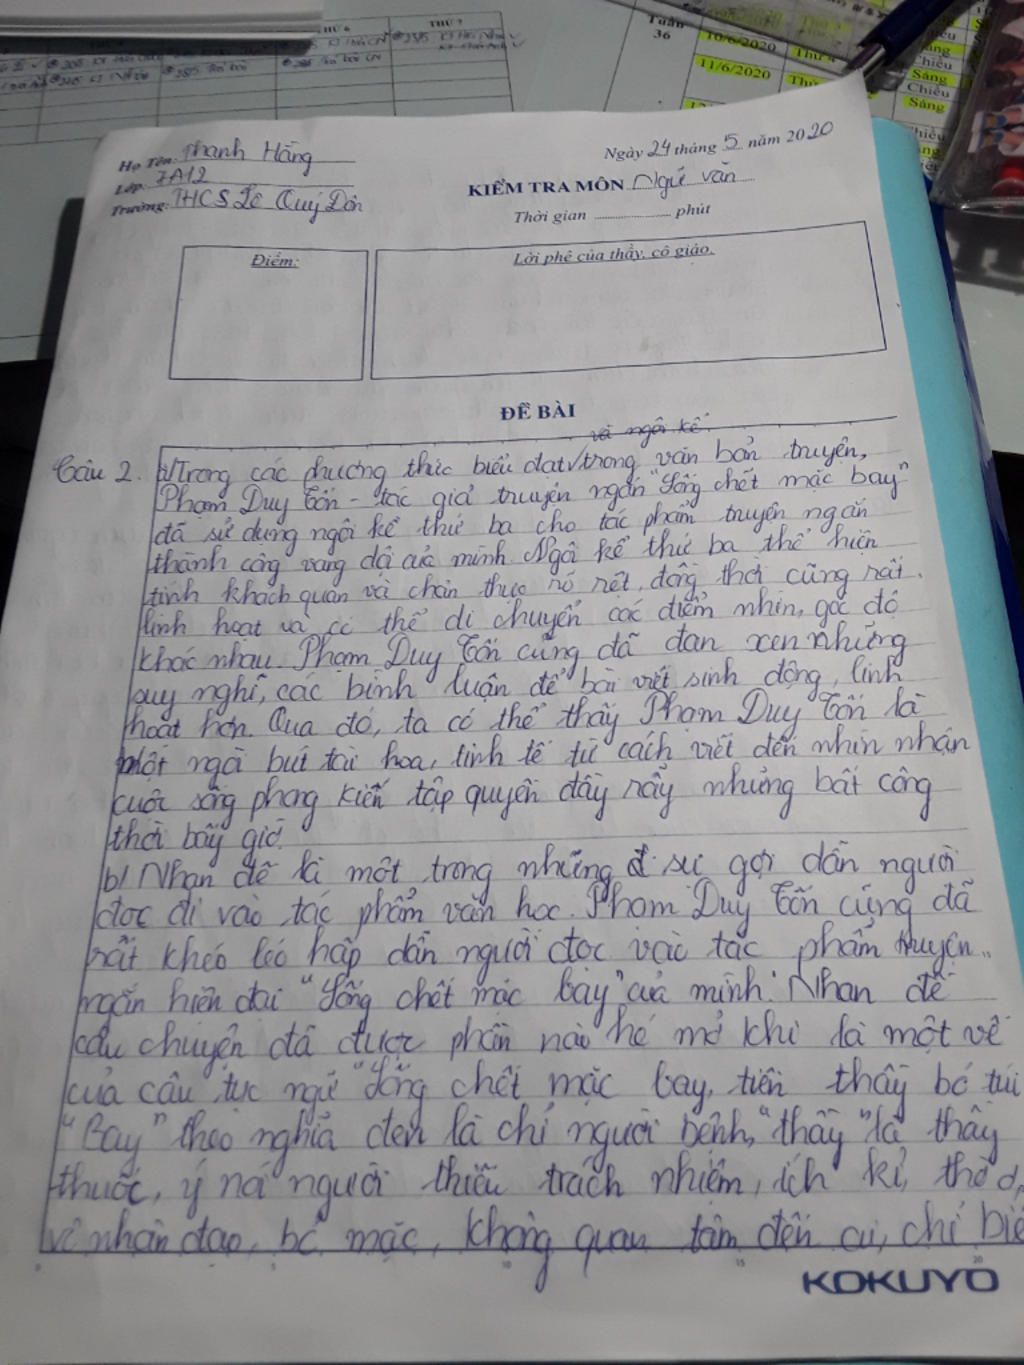 THỨ 6
THỨ 7
Tuần
36
10/6/2020
Thứ 4
Chiều
11/6/2020
Sáng
Chiều
Sáng
Họ Tên: Thanh Hằng
Ngày 24 tháng 5 năm 2020
Lớp: 7A12
KIỂM TRA MÔN Ngữ văn
Trường: THCS Lê Quý Đôn
Thời gian ............ phút
Điểm:
Lời phê của thầy, cô giáo.
ĐỀ BÀI
và ngôi kể
Câu 2. a/ Trong các phương thức biểu đạt √ trong văn bản truyện,
Phạm Duy Tốn - tác giả truyện ngắn "Sống chết mặc bay"
đã sử dụng ngôi kể thứ ba cho tác phẩm truyện ngắn
thành công vang dội của mình. Ngôi kể thứ ba thể hiện
tính khách quan và chân thực rõ rệt, đồng thời cũng rất
linh hoạt và có thể di chuyển các điểm nhìn, góc độ
khác nhau. Phạm Duy Tốn cũng đã đan xen những
suy nghĩ, các bình luận để bài viết sinh động, linh
hoạt hơn. Qua đó, ta có thể thấy Phạm Duy Tốn là
một ngòi bút tài hoa, tinh tế từ cách viết đến nhìn nhận
cuộc sống phong kiến tập quyền đầy rẫy những bất công
thời bấy giờ.
b/ Nhan đề là một trong những sự gợi dẫn người
đọc đi vào tác phẩm văn học. Phạm Duy Tốn cũng đã
rất khéo léo hấp dẫn người đọc vào tác phẩm truyện
ngắn hiện đại "Sống chết mặc bay" của mình. Nhan đề
câu chuyện đã được phần nào hé mở khi là một vế
của câu tục ngữ "Sống chết mặc bay, tiền thầy bỏ túi
"Bay" theo nghĩa đen là chỉ người bệnh, "thầy" là thầy
thuốc, ý nói người thiếu trách nhiệm, ích kỉ, thờ ơ,
vô nhân đạo, bỏ mặc, không quan tâm đến ai, chỉ biế
KOKUYO